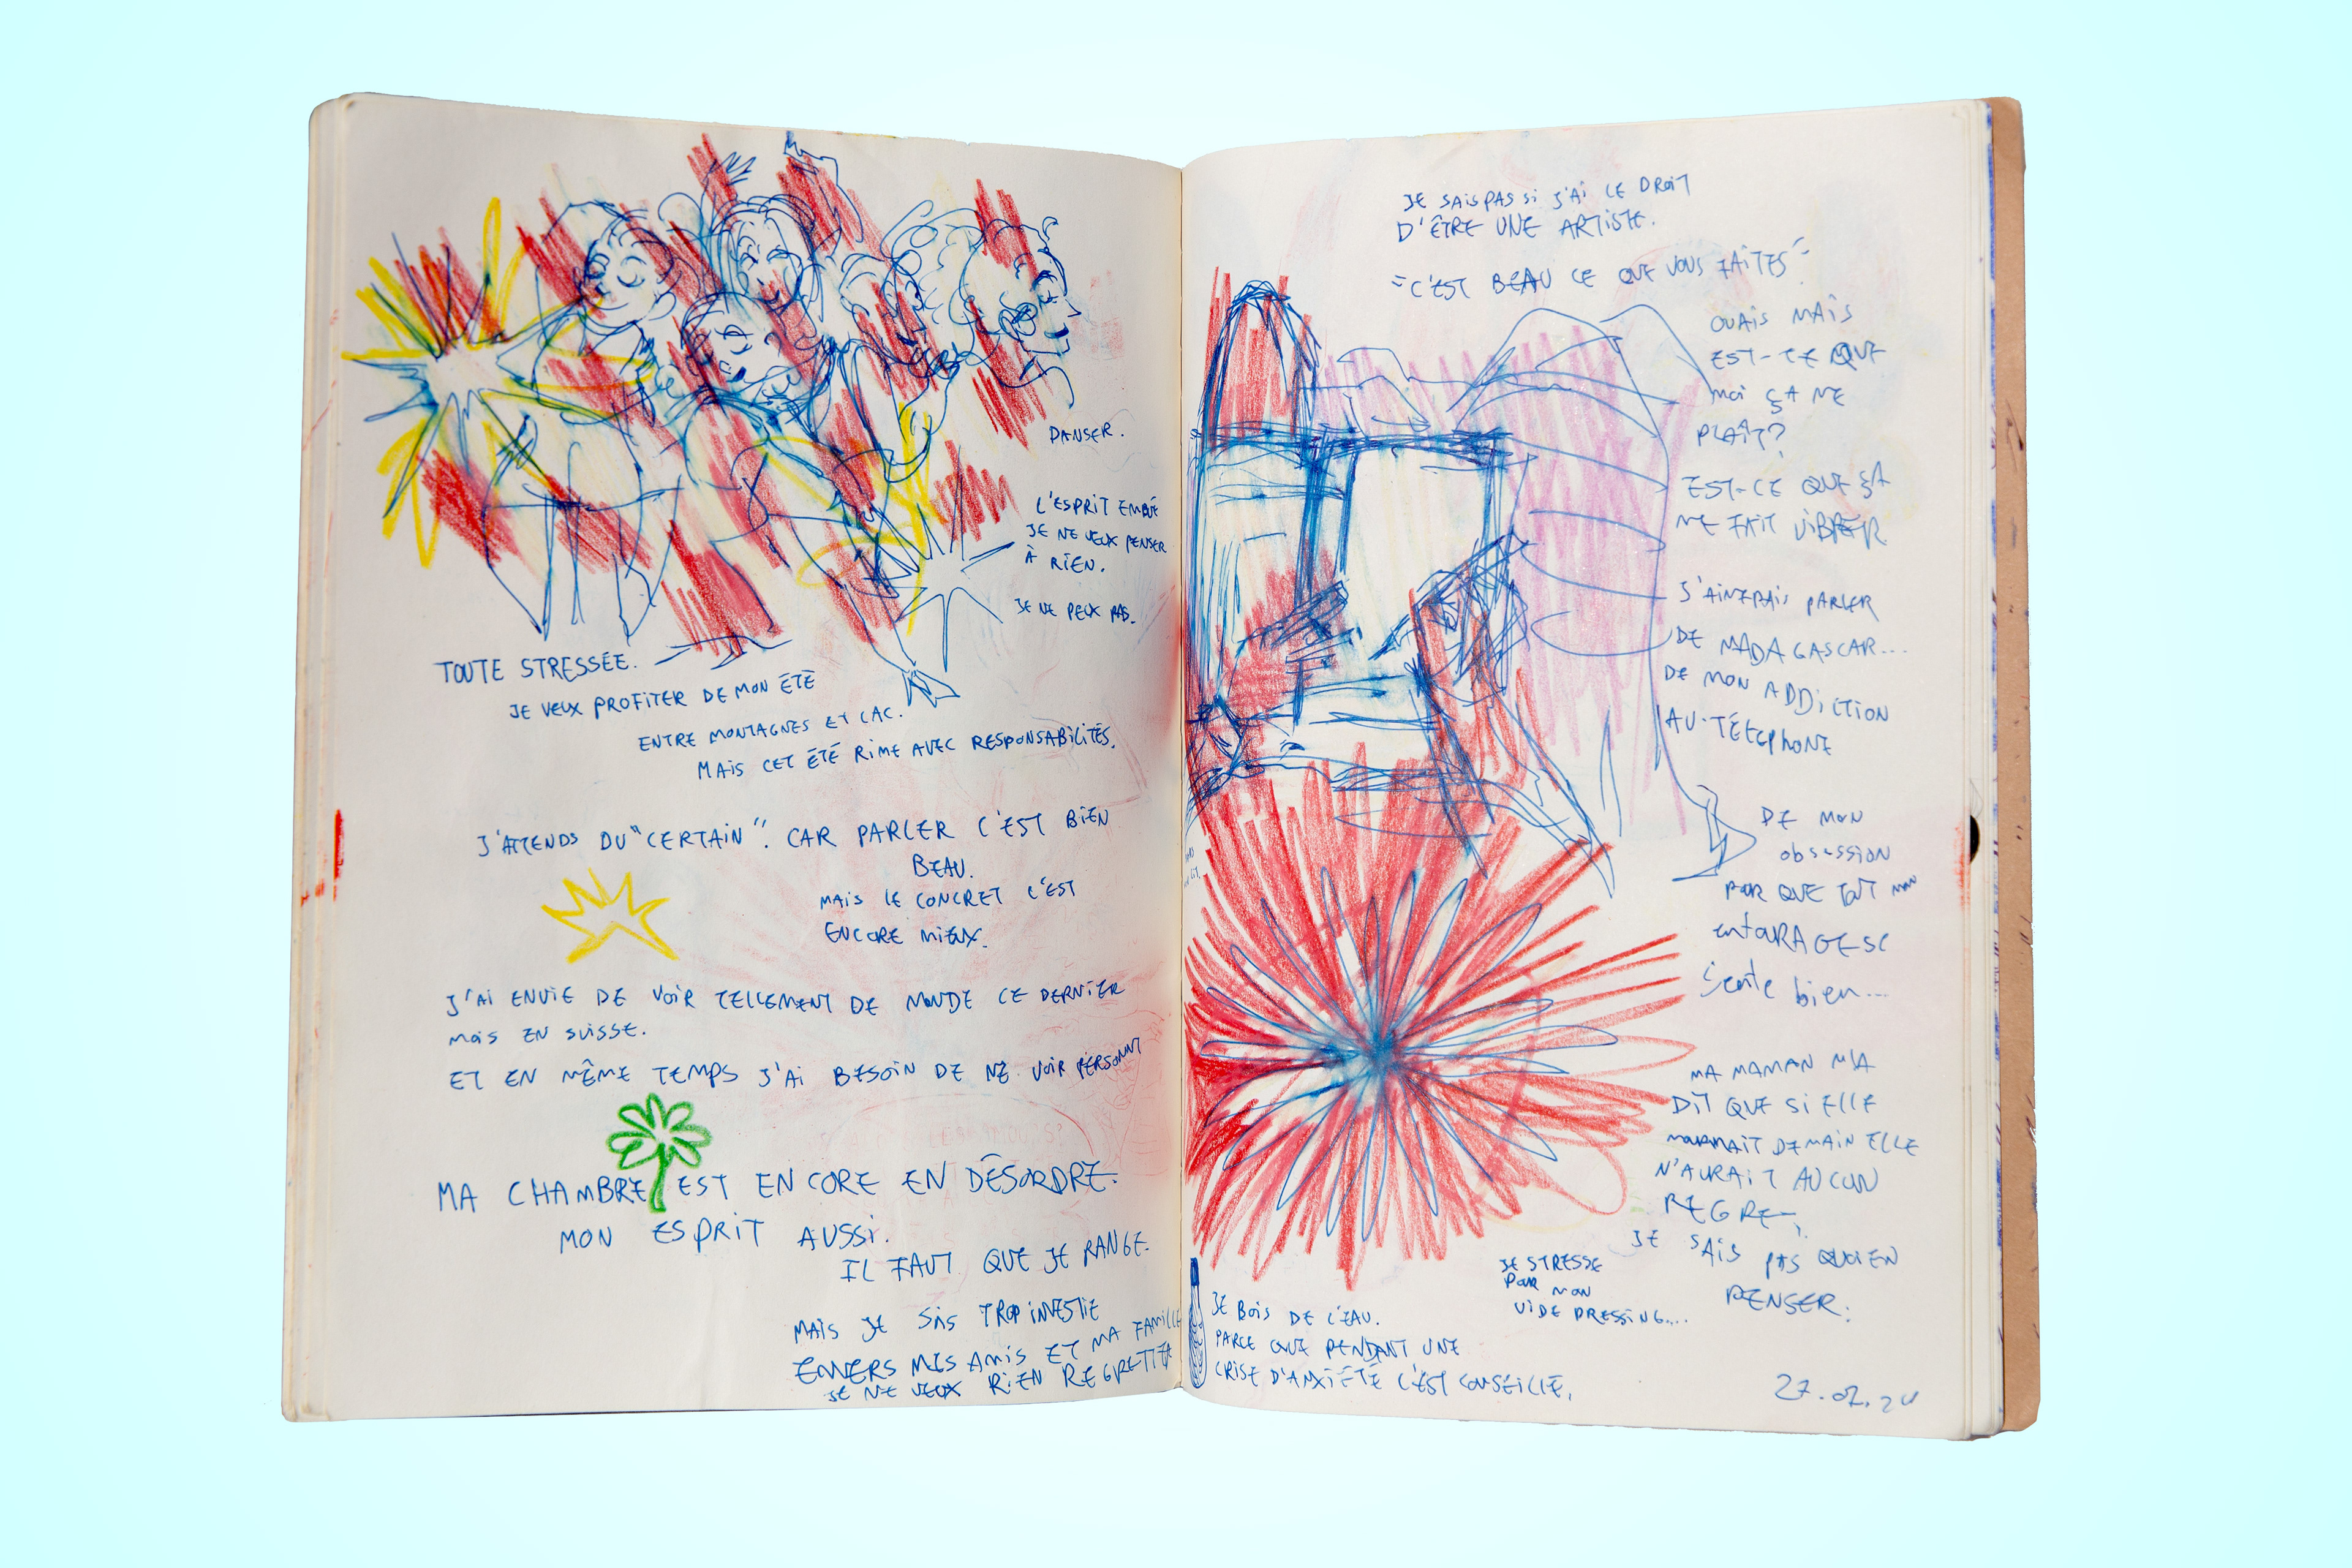 DANSER.
L'ESPRIT EMBUÉ
JE NE VEUX PENSER
À RIEN.
JE NE PEUX PAS.
TOUTE STRESSÉE.
JE VEUX PROFITER DE MON ÉTÉ
ENTRE MONTAGNES ET LAC.
MAIS CET ÉTÉ RIME AVEC RESPONSABILITÉS.
J'ATTENDS DU "CERTAIN". CAR PARLER C'EST BIEN
BEAU.
MAIS LE CONCRET C'EST
ENCORE MIEUX.
J'AI ENVIE DE VOIR TELLEMENT DE MONDE CE DERNIER
MOIS EN SUISSE.
ET EN MÊME TEMPS J'AI BESOIN DE NE VOIR PERSONNE
MA CHAMBRE EST ENCORE EN DÉSORDRE.
MON ESPRIT AUSSI.
IL FAUT QUE JE RANGE.
MAIS JE SUIS TROP INVESTIE
ENVERS MES AMIS ET MA FAMILLE
JE NE VEUX RIEN REGRETTER
JE SAIS PAS SI J'AI LE DROIT
D'ÊTRE UNE ARTISTE.
"C'EST BEAU CE QUE VOUS FAITES"
OUAIS MAIS
EST-CE QUE
MOI ÇA ME
PLAÎT?
EST-CE QUE ÇA
ME FAIT VIBRER
J'AIMERAIS PARLER
DE MADAGASCAR...
DE MON ADDICTION
AU TÉLÉPHONE
DE MON
OBSESSION
POUR QUE TOUT MON
ENTOURAGE SE
SENTE BIEN...
MA MAMAN M'A
DIT QUE SI ELLE
MOURRAIT DEMAIN ELLE
N'AURAIT AUCUN
REGRET,
JE SAIS PAS QUOI EN
PENSER.
JE STRESSE
POUR MON
VIDE DRESSING....
JE BOIS DE L'EAU.
PARCE QUE PENDANT UNE
CRISE D'ANXIÉTÉ C'EST CONSEILLÉ.
27.07.24